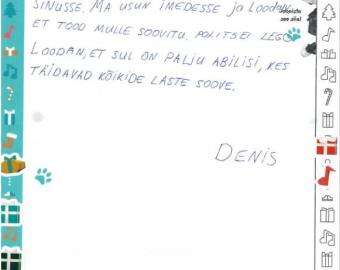 SINUSSE. MA USUN IMEDESSE JO LOODAN,
ET TOOD MULLE SOOVITU. POLITSEI LEGO
LOODAN, ET SUL ON PALJU ABILISI, KES
TÄIDAVAD KÕIKIDE LASTE SOOVE.
DENIS